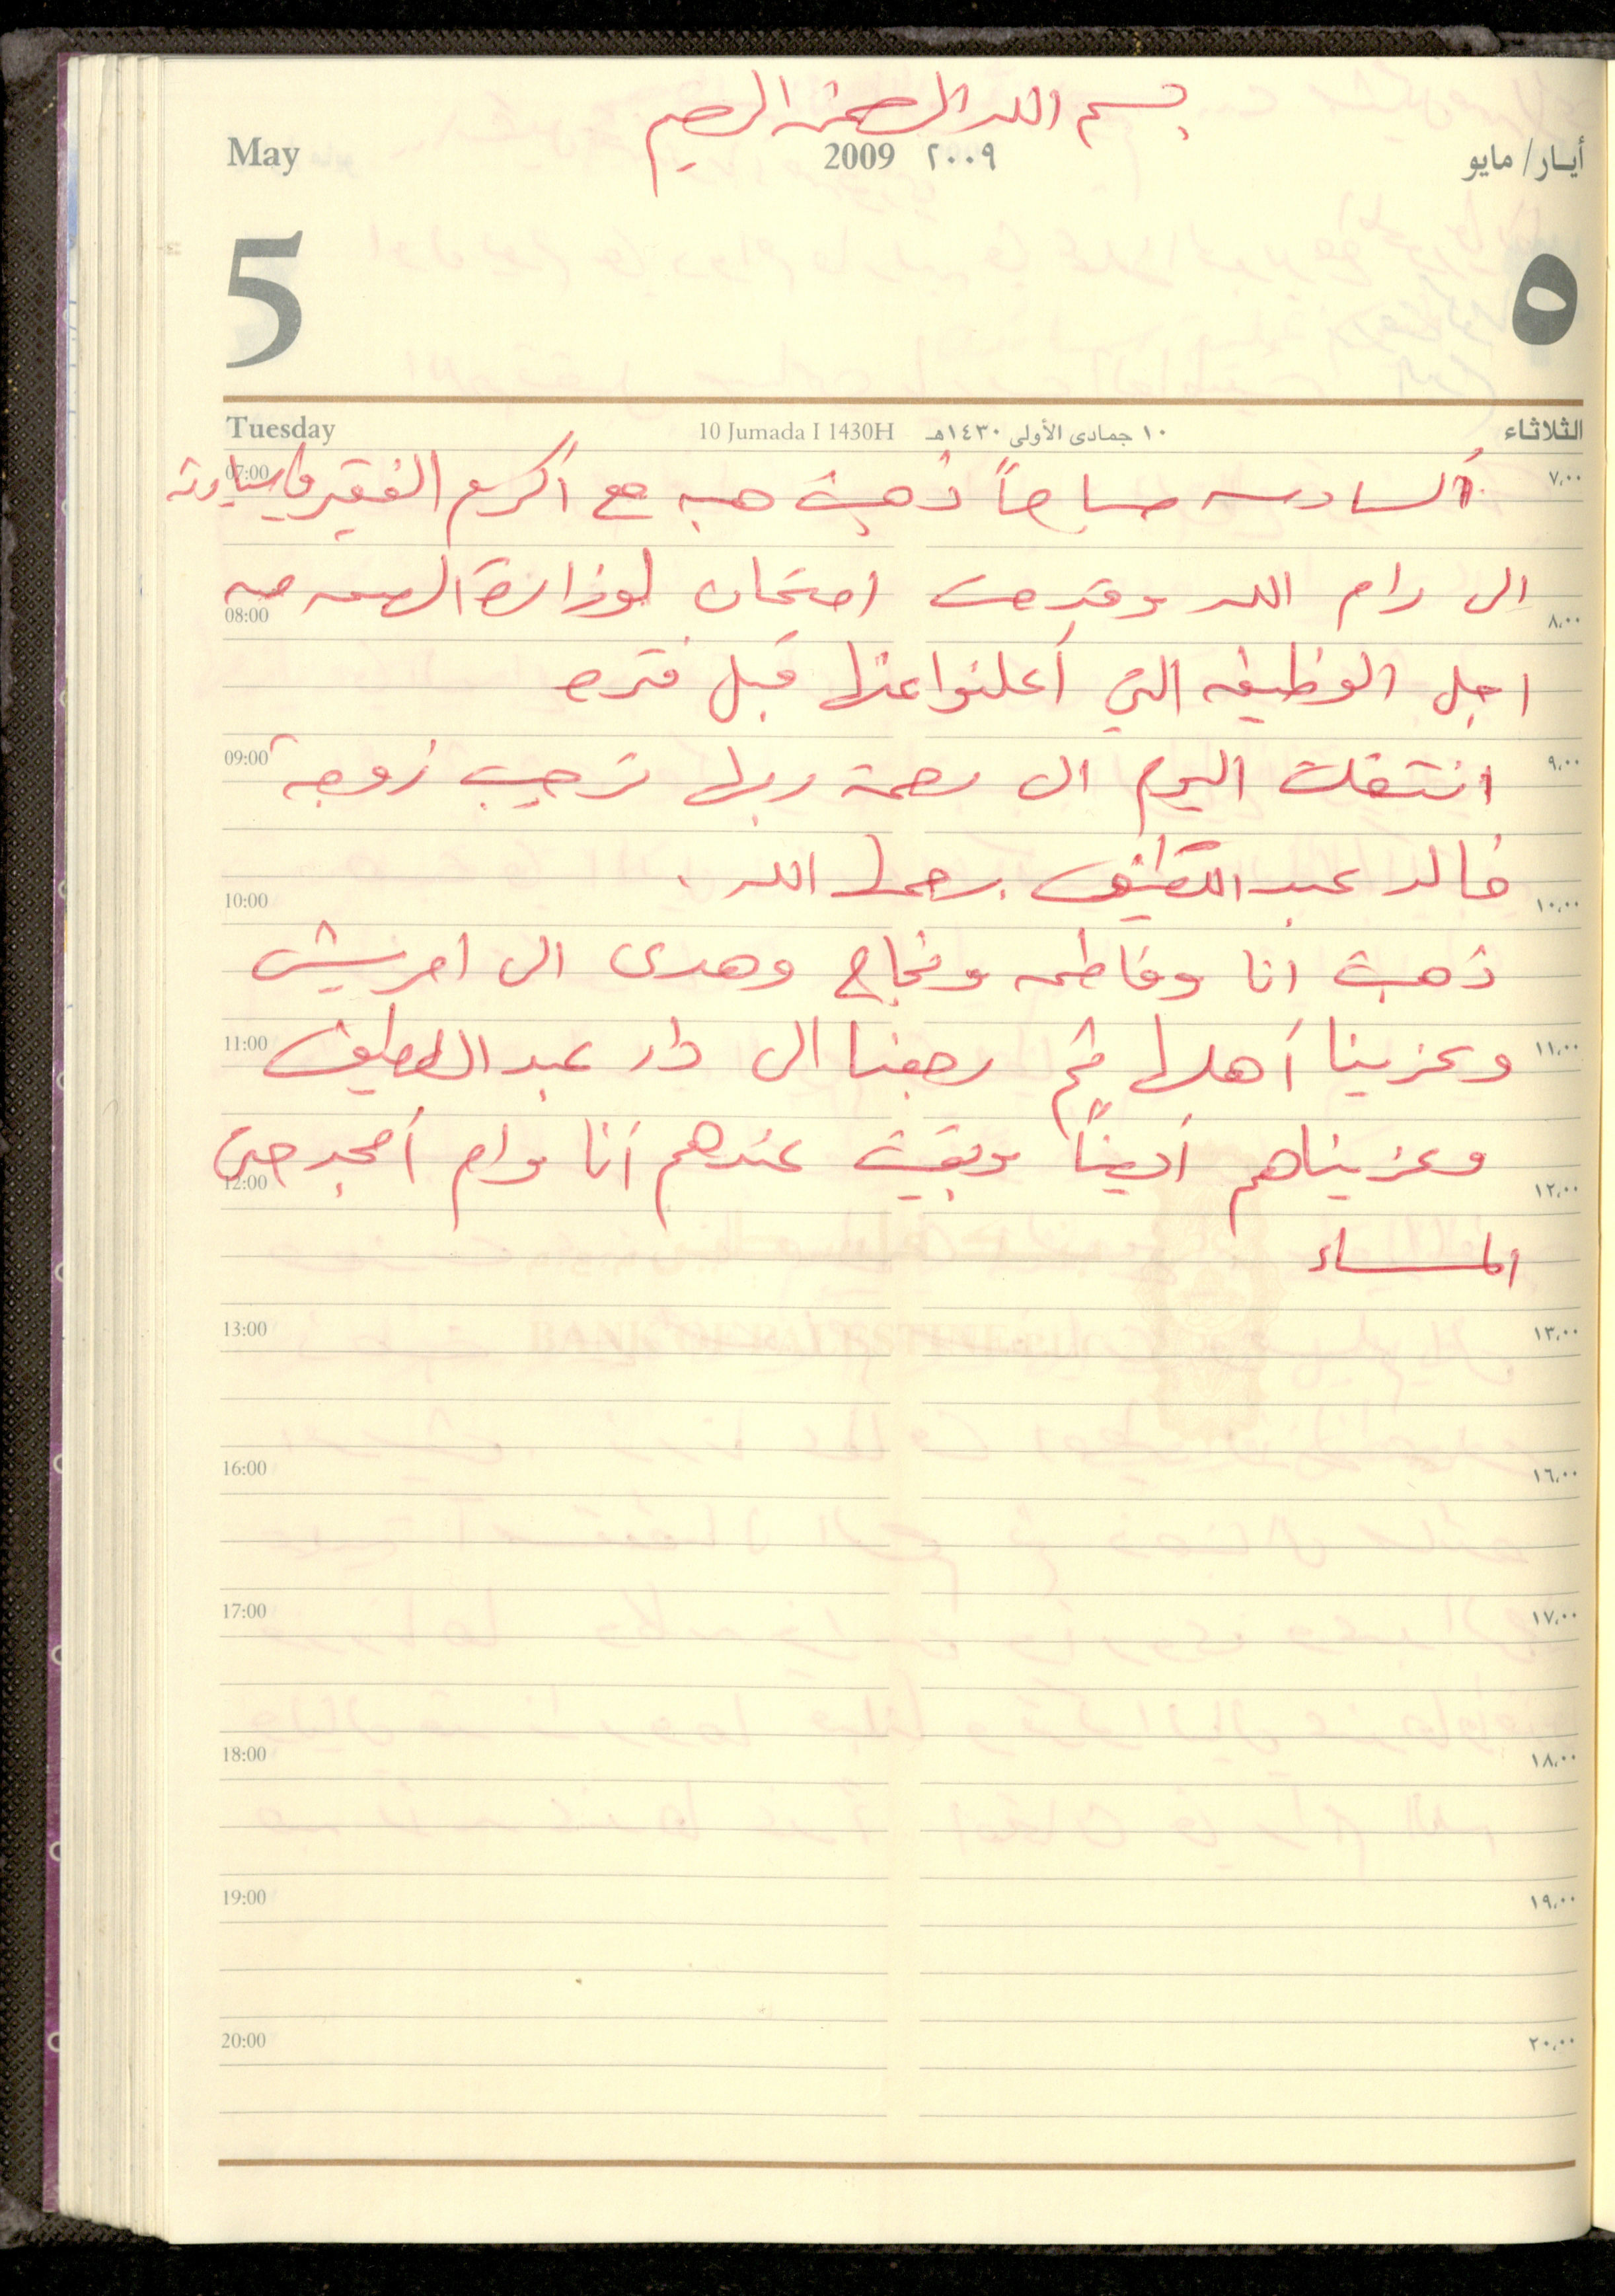 بسم الله الرحمن الرحيم
May 2009 ٢٠٠٩ أيـار/ مايو
5 ٥
Tuesday 10 Jumada I 1430H ١٠ جمادى الأولى ١٤٣٠هـ الثلاثاء
07:00 ٧،٠٠
السادسه صباحاً ذهبت هبه مع أكرم الفقيه بسيارته
الى رام الله وقدمت امتحان لوزارة الصحه من
08:00 ٨،٠٠
اجل الوظيفه التي أعلنوا عنها قبل فتره
09:00 ٩،٠٠
انتقلت اليوم الى رحمة ربها زوجة
خالد عبد اللطيف رحمها الله .
10:00 ١٠،٠٠
ذهبت انا وفاطمه ونجاح وهدى الى امريش
11:00 ١١،٠٠
وعزينا أهلها ثم رجعنا الى دار عبد اللطيف
وعزيناهم أيضاً وبقيت عندهم أنا وام أمجد حتى
12:00 ١٢،٠٠
المساء
13:00 ١٣،٠٠
16:00 ١٦،٠٠
17:00 ١٧،٠٠
18:00 ١٨،٠٠
19:00 ١٩،٠٠
20:00 ٢٠،٠٠